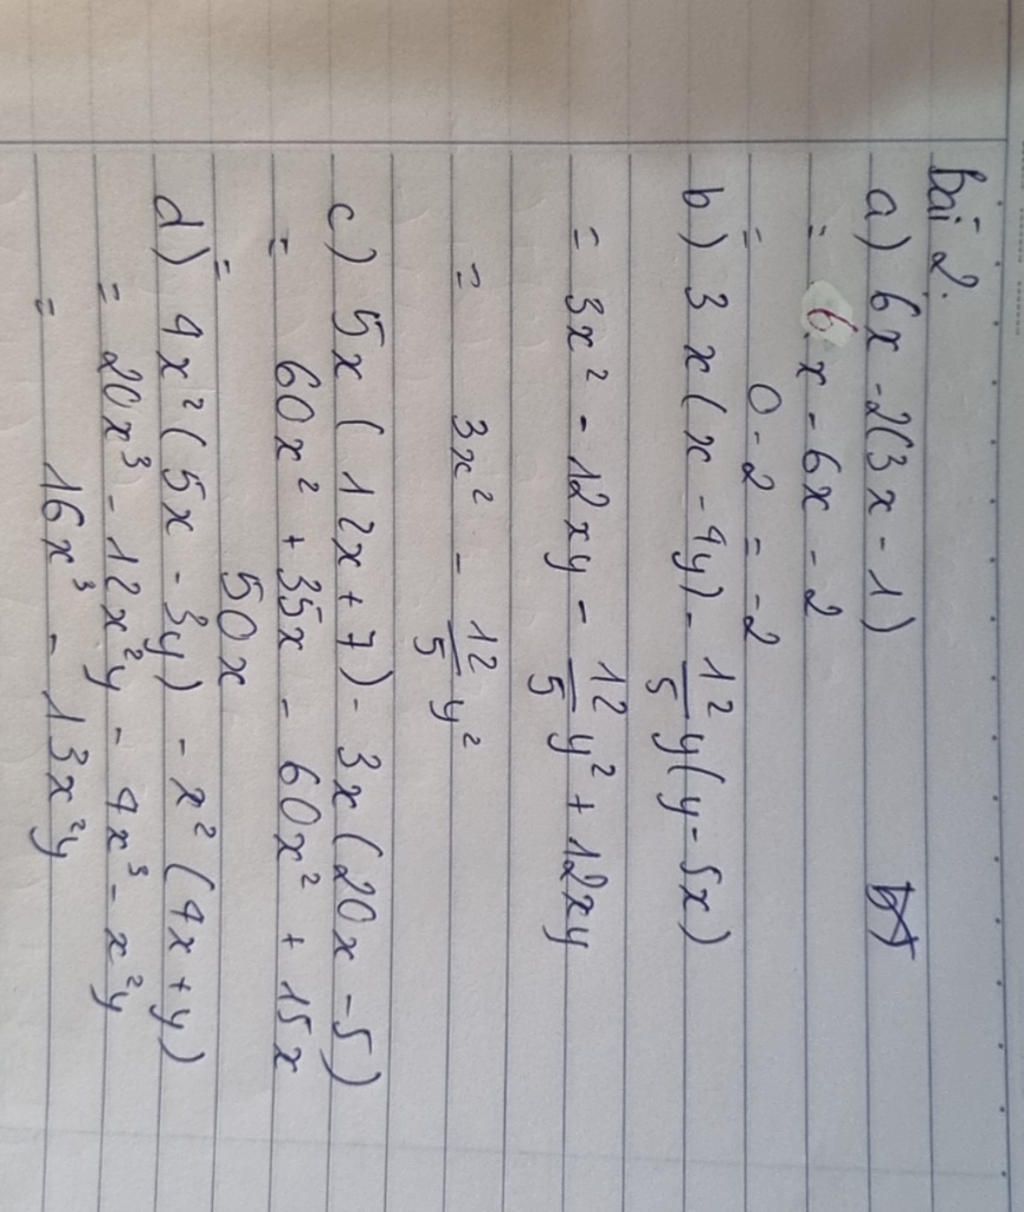 Bài 2.
a) 6x - 2(3x - 1)
= 6x - 6x - 2
= 0 - 2 = -2
b) 3x(x - 4y) - 12/5 y(y - 5x)
= 3x² - 12xy - 12/5 y² + 12xy
= 3x² - 12/5 y²
c) 5x(12x + 7) - 3x(20x - 5)
= 60x² + 35x - 60x² + 15x
= 50x
d) 4x²(5x - 3y) - x²(4x + y)
= 20x³ - 12x²y - 4x³ - x²y
= 16x³ - 13x²y